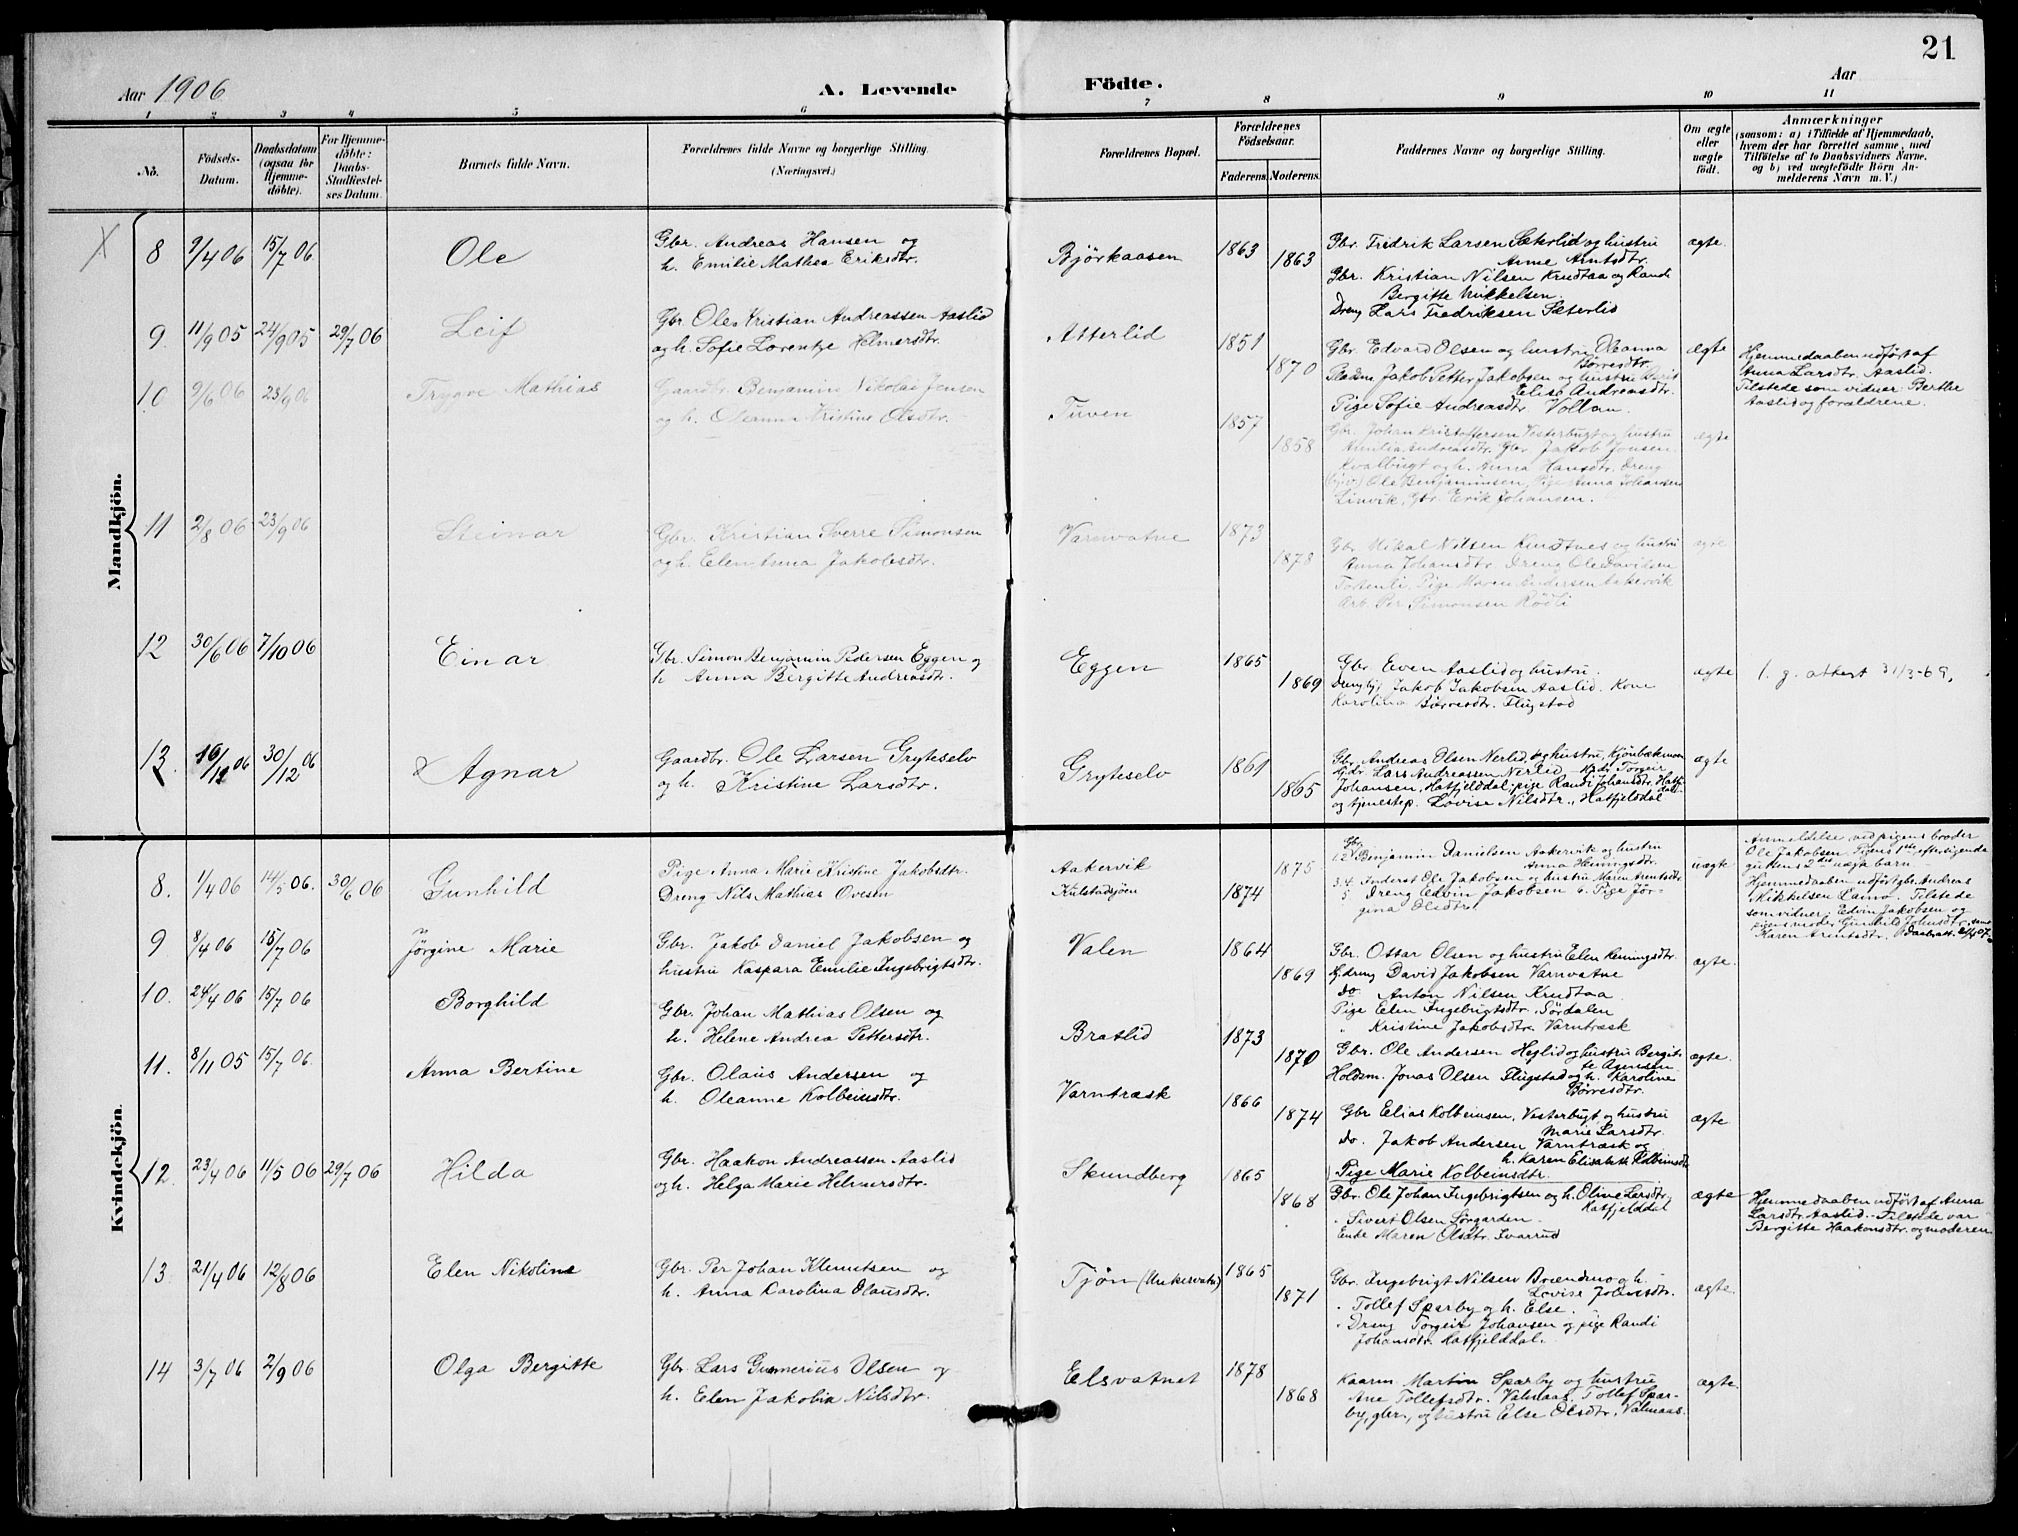 21
Aar 1906
A. Levende
Födte.
Aar
1 2 3 4 5 6 7 8 9 10 11
No.
Födsels-
Datum.
Daabsdatum
(ogsaa for
Hjemme-
döbte).
For Hjemme-
döbte:
Daabs-
Stadfæstel-
ses Datum.
Barnets fulde Navn.
Forældrenes fulde Navne og borgerlige Stilling.
(Næringsvei.)
Forældrenes Bopæl.
Forældrenes
Födselsaar.
Faderens. Moderens.
Faddernes Navne og borgerlige Stilling.
Om ægte
eller
uægte
födt.
Anmærkninger
(saasom: a) i Tilfælde af Hjemmedaab,
hvem der har forrettet samme, med
Tilföielse af to Daabsvidners Navne,
og b) ved uægtefödte Börn An-
melderens Navn m. V.)
Mandkjön.
8 9/4 06 15/7 06 Ole
Gbr. Andreas Hansen og
h. Emilie Mathea Eriksdtr.
Bjørkaasen 1863 1863
Gbr. Fredrik Larsen Sæterlid og hustru
Anne Arntsdtr.
Gbr. Kristian Nilsen Krudtaa og Randi
Bergitte Mikkelsen.
Dreng Lars Fredriksen Sæterlid
ægte
9 11/9 05 24/9 05 29/7 06 Leif
Gbr. Ole Kristian Andreassen Aaslid
og h. Sofie Lorentze Helmersdtr.
Atterlid 1851 1870
Gbr. Edvard Olsen og hustru Oleanna
Børresdtr.
Pladsm. Jakob Petter Jakobsen og hustru Berit
Elise Andreasdtr.
Pige Sofie Andreasdtr. Vollan
ægte
Hjemmedaaben udført af
Anna Larsdtr. Aaslid.
Tilstede som vidner: Berthe
Aaslid og forældrene.
10 9/6 06 23/9 06 Trygve Mathias
Gaardbr. Benjamin Nikolai Jensen
og h. Oleanna Kristine Olsdtr.
Tuven 1857 1858
Gbr. Johan Kristoffersen Vesterbugt og hustru
Amilia Andreasdtr. Gbr Jakob Jonsen
Kvalbugt og h. Anna Hansdtr. Dreng
Ole Benjaminsen, Pige Anna Johansen
Linvik, Gbr. Erik Johansen.
ægte
11 2/8 06 23/9 06 Steinar
Gbr. Kristian Sverre Simonsen
og h. Elen Anna Jakobsdtr.
Varnvatne 1873 1878
Gbr. Mikal Nilsen og hustru
Anna Johansdtr. Dreng Ole Davidsen
Pige Maren Andersen
Arb. Per Simonsen Rödli
ægte
12 30/6 06 7/10 06 Einar
Gbr. Simon Benjamin Pedersen Eggen og
h Anna Bergitte Andreasdtr.
Eggen 1865 1869
Gbr Even Aaslid og hustru.
Jakob Jakobsen Aaslid. Kone
Karolina Børresdtr. Flugstad
ægte
l. g. attest 31/3-69.
13. 16/12 06 30/12 06 Agnar
Gaardbr. Ole Larsen Gryteselv
og h. Kristine Larsdtr.
Gryteselv 1861 1865
Gbr. Andreas Olsen Nerlid, og hustru,
Lars Andreassen Nerlid Torgeir
Johansen, Hatfjelddal, pige Randi Johansdtr. Hatfj
dal
og tjenestep. Lovise Nilsdtr., Hatfjelddal
ægte
Kvindekjön.
8. 1/4 06 14/5 06. 30/6 06 Gunhild
Pige Anna Marie Kristine Jakobsdtr.
Dreng Nils Mathias Ovesen
Aakervik
Kulstadsjøen
1875 1874
Gbr.
1 2 Benjamin Danielsen Aakervik og hustru
Anna Heiningsdtr.
3. 4. Inderst Ole Jakobsen og hustru Maria Arntsdtr
5 Dreng Edvin Jakobsen 6. Pige Jør-
gina Olsdtr.
uægte
Anmeldelse ved pigens broder
Ole Jakobsen Pigens 1ste, efter sigende
guttens 2det uægta barn.
Hjemmedaaben udført gbr. Andreas
Mikkelsen Lamo. Tilstede
som vidner: Edvin Jakobsen og
pigens moder Gunhild Johnsdtr. samt
Karen Arntsdtr.
9 8/4 06 15/7 06 Jørgine Marie
Gbr. Jakob Daniel Jakobsen og
hustru Kaspara Emilie Ingebrigtsdtr.
Valen 1864 1869
Gbr. Ottar Olsen og hustru Elen Heiningsdtr.
dreng David Jakobsen Varnvatne
do Anton Nilsen Krudtaa
Pige Elen Ingebrigtsdtr. Sördalen
" Kristine Jakobsdtr. Varntræsk
ægte.
10. 24/4 06 15/7 06 Borghild
Gbr. Johan Mathias Olsen og
h. Helene Andrea Pettersdtr.
Bratlid 1873 1870
Gbr. Ole Andersen Heglid og hustru Bergit-
te Agnesen
Holdsm. Jonas Olsen Flugstad og h. Karoline
Børresdtr.
ægte.
11. 8/11 05 15/7 06. Anna Bertine
Gbr. Olaus Andersen og
h. Oleanne Kolbeinsdtr.
Varntræsk 1866 1874
Gbr Elias Kolbeinsen, Vesterbugt og hustru
Marie Larsdtr.
Do. Jakob Andersen Varntræsk og
h. Karen Elisabeth Kolbeinsdtr
Pige Marie Kolbeinsdtr.
ægte
12. 23/4 06 11/5 06 29/7 06 Hilda
Gbr. Haakon Andreassen Aaslid
og h. Helga Marie Helmersdtr.
Skundberg 1865 1868
Gbr. Ole Johan Ingebrigtsen og h. Oline Larsdtr,
Hatfjelddal
" Sivert Olsen Sörgarden.
Enke Maren Olsdtr. Svarrud
ægte
Hjemmedaaben udført af Anna
Larsdtr. Aaslid. - Tilstede var
Bergitte Haakonsdtr. og moderen
13 21/4 06 12/8 06 Elen Nikoline
Gbr. Per Johan Klemetsen og
h. Anna Karolina Olausdtr.
Tjön (Unkervatn) 1865 1871
Gbr. Ingebrigt Nilsen Brændmo og h.
Lovise Johnsdtr.
" Tollef Sparby og h. Else.
" Dreng Torgeir Johansen og pige Randi
Johansdtr. Hatfjelddal.
ægte.
14 3/7 06 2/9 06 Olga Bergitte
Gbr. Lars Gunnerius Olsen og
h. Elen Jakobia Nilsdtr.
Elsvatnet 1878 1868
Kaarm Martin Sparby og hustru
Ane Tollefsdtr. Valmaas. Tollef Spar-
by, gbr., og hustru Else Olsdtr. Valmaas.
ægte.